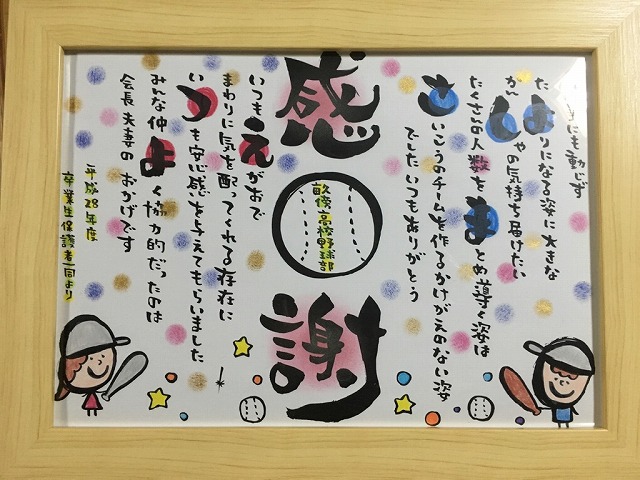 事にも動じず
たよりになる姿に大きな
かんしゃの気持ち届けたい
たくさんの人数をまとめ導く姿は
さいこうのチームを作るかけがえのない姿
でしたいつもありがとう
感謝
畝傍高校野球部
いつもえがおで
まわりに気を配ってくれる存在に
いつも安心感を与えてもらいました
みんな仲よく協力的だったのは
会長夫妻のおかげです
平成28年度
卒業生保護者一同より